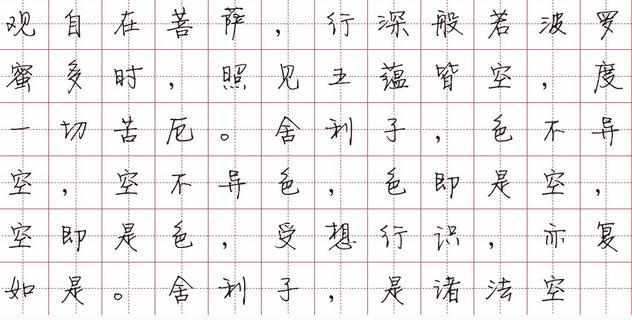 观自在菩萨，行深般若波罗
蜜多时，照见五蕴皆空，度
一切苦厄。舍利子，色不异
空，空不异色，色即是空，
空即是色，受想行识，亦复
如是。舍利子，是诸法空